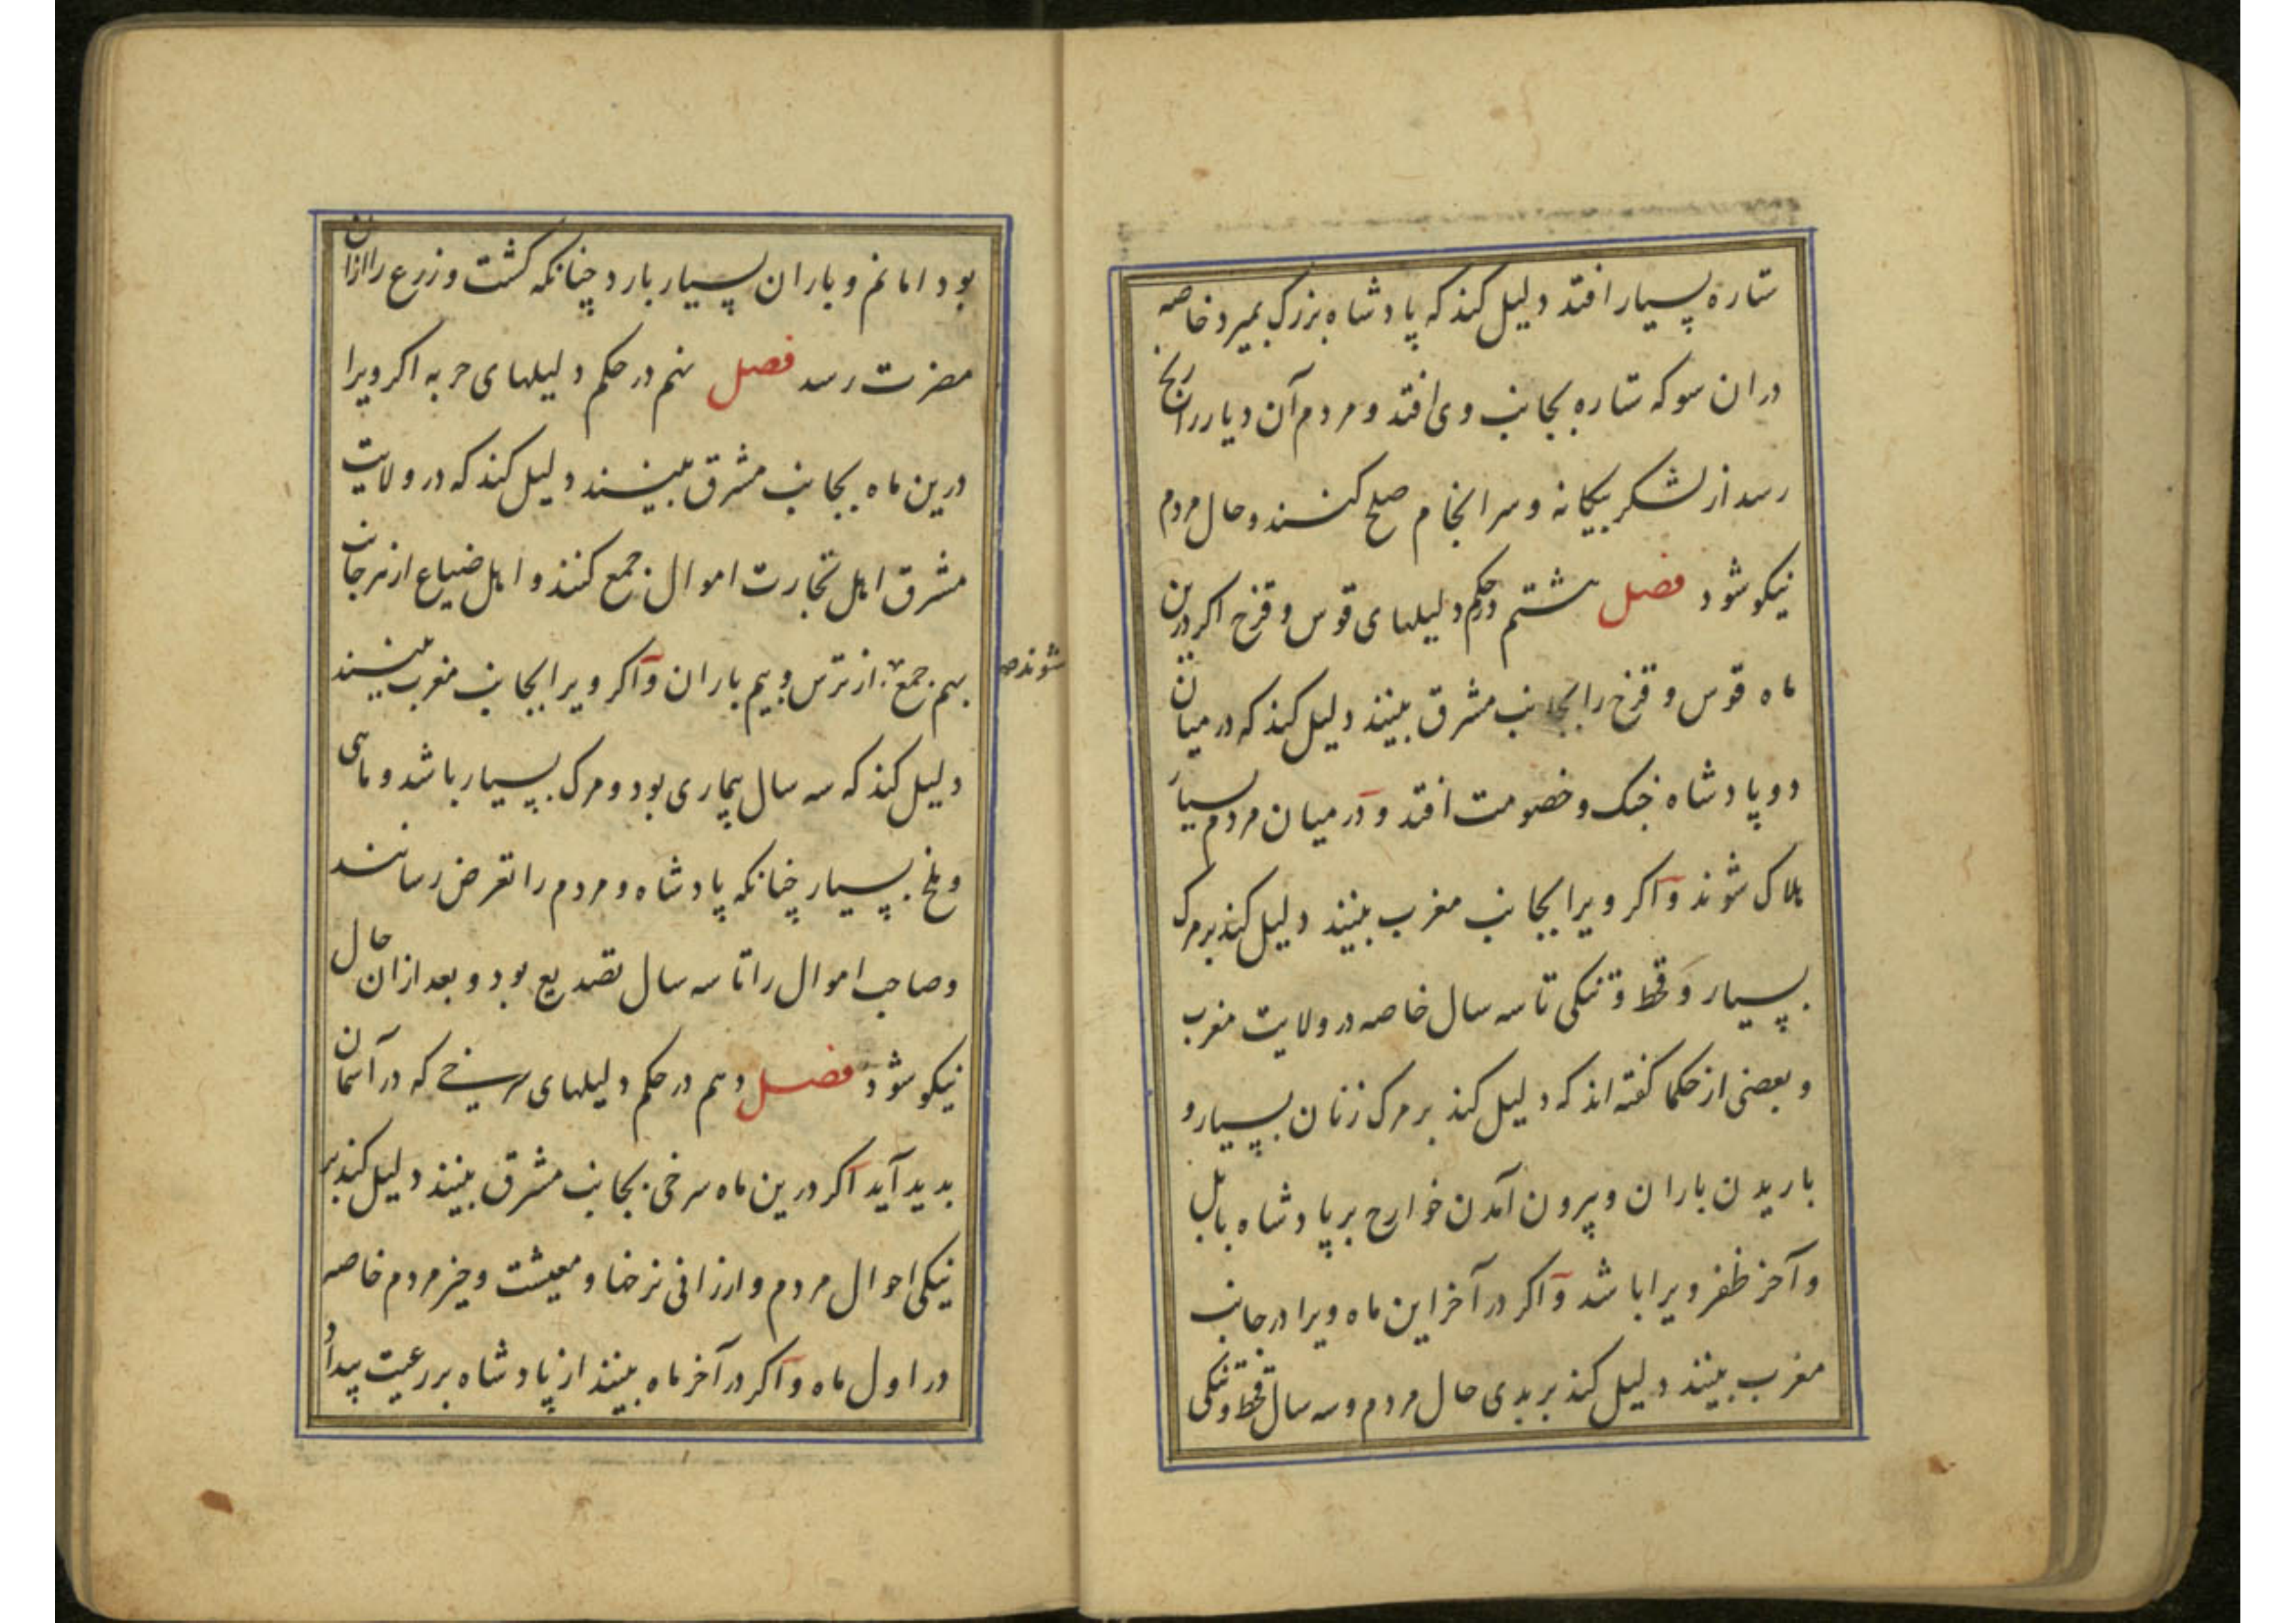 ستاره بسیار افتد دلیل کند که پادشاه بزرک بمیرد خاصه
دران سو که ستاره بجانب وی افتد و مردم آن دیار را رنج
رسد از لشکر بیکانه و سرانجام صلح کنند و حال مردم
نیکو شود فصل هشتم در حکم دلیلهای قوس و قزح اکر درین
ماه قوس و قزح را بجانب مشرق بینند دلیل کند که در میان
دو پادشاه جنک و خصومت افتد و در میان مردم بسیار
هلاک شوند و اکر ویرا بجانب مغرب بینند دلیل کند بر مرک
بسیار و قحط و تنکی تا سه سال خاصه در ولایت مغرب
و بعضی از حکما کفته اند که دلیل کند بر مرک زنان بسیار و
باریدن باران و بیرون آمدن خوارج بر پادشاه بابل
و آخر ظفر ویرا باشد و اکر در آخر این ماه ویرا در جانب
مغرب بینند دلیل کند بر بدی حال مردم و سه سال قحط و تنکی
بود اما نم و باران بسیار بارد چنانکه کشت و زرع را ازان
مضرت رسد فصل نهم در حکم دلیلهای حربه اکر ویرا
درین ماه بجانب مشرق بینند دلیل کند که در ولایت
مشرق اهل تجارت اموال جمع کنند و اهل ضیاع از هر جانب
بهم جمع از ترس و بیم باران و اکر ویرا بجانب مغرب بینند
شوند صح
دلیل کند که سه سال بیماری بود و مرک بسیار باشد و ماهی
و ملخ بسیار چنانکه پادشاه و مردم را تعرض رسانند
و صاحب اموال را تا سه سال تصدیع بود و بعد ازان حال
نیکو شود فصل دهم در حکم دلیلهای سرخی که در آسمان
بدید آید اکر درین ماه سرخی بجانب مشرق بینند دلیل کند بر
نیکی احوال مردم و ارزانی نرخها و معیشت و خیر مردم خاصه
در اول ماه و اکر در آخر ماه بینند از پادشاه بر رعیت بیداد